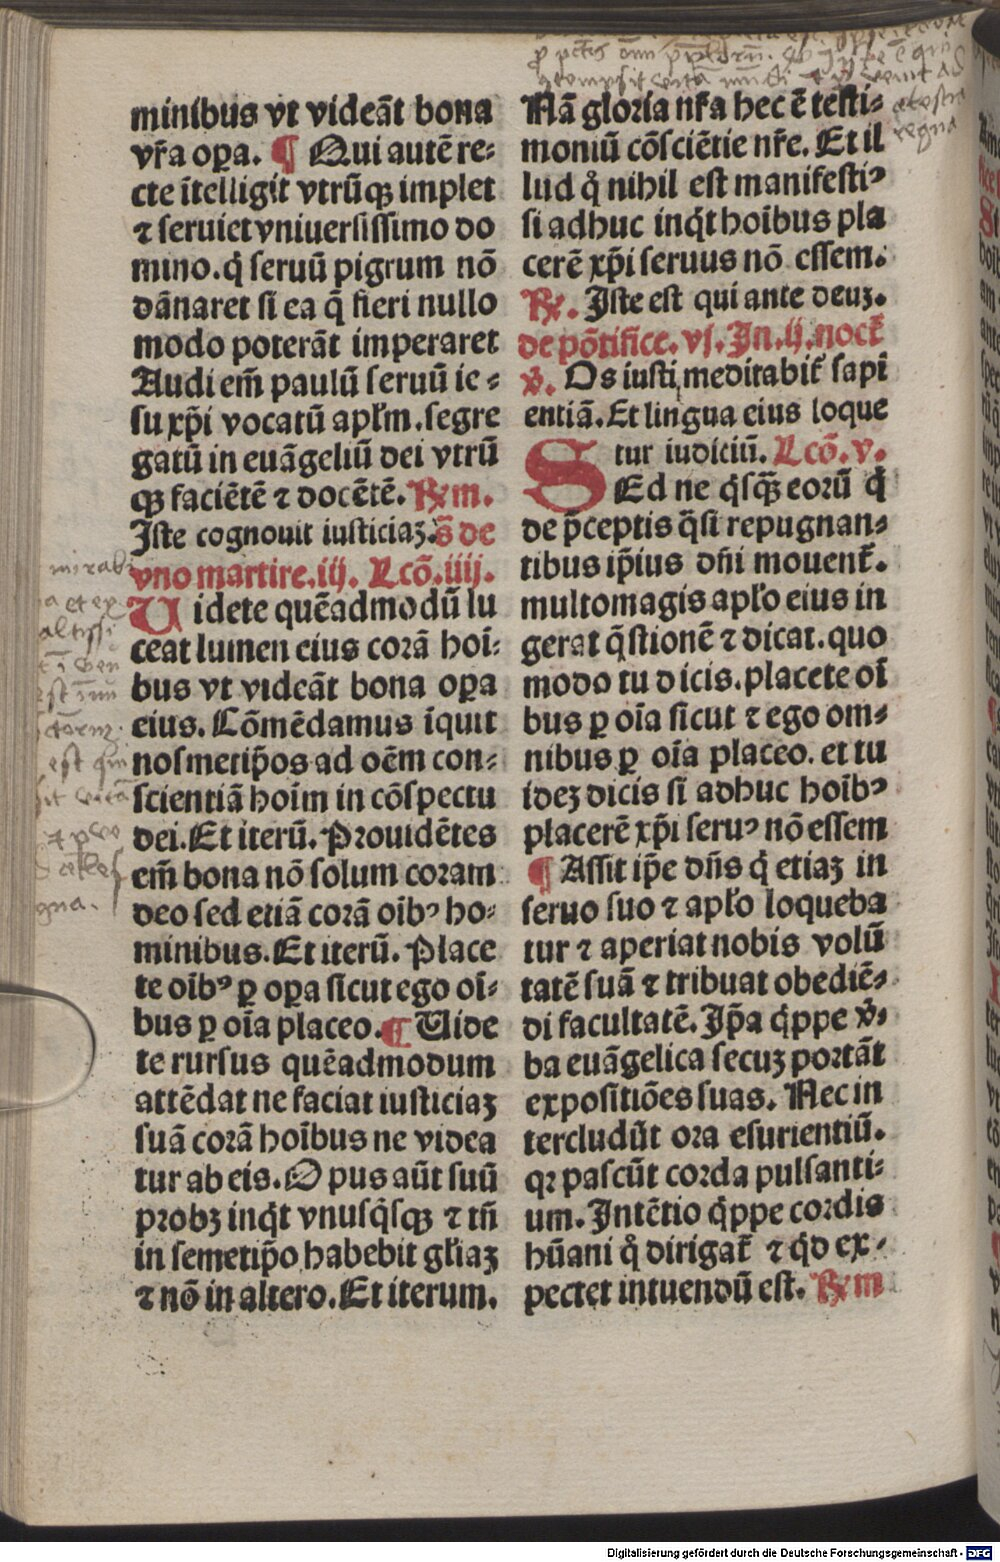 minibus vt videāt bona
vr̄a oꝑa. ¶ Qui autē re⸗
cte ītelligit vtrūqꝫ implet
⁊ seruiet vniuersissimo do
mino. q̇ seruū pigrum nō
dānaret si ea q̄ fieri nullo
modo poterāt imperaret
Audi em̄ paulū seruū ie⸗
su xp̄i vocatū apłm. segre
gatū in euāgeliū dei vtrū
qꝫ faciētē ⁊ docētē. ℞m.
Iste cognouit iusticiaꝫ. s̄ de
vno martire. iij. Lcō. iiij.
Uidete quēadmodū lu
ceat lumen eius corā hoī⸗
bus vt videāt bona oꝑa
eius. Cōmēdamus īquit
nosmetip̄os ad oēm con⸗
scientiā hoīm in cōspectu
dei. Et iterū. Prouidētes
em̄ bona nō solum coram
deo sed etiā corā oībꝰ ho⸗
minibus. Et iterū. Place
te oībꝰ ꝑ oꝑa sicut ego oī⸗
bus ꝑ oīa placeo. ¶ Uide
te rursus quēadmodum
attēdat ne faciat iusticiaꝫ
suā corā hoībus ne videa
tur ab eis. Opus aūt suū
probꝫ inq̇t vnusq̇sqꝫ ⁊ tn̄
in semetip̄o habebit gl̄iaꝫ
⁊ nō in altero. Et iterum.
Nā gloria nr̄a hec ē testi⸗
moniū cōsciētie nr̄e. Et il
lud q̇ nihil est manifestiꝰ
si adhuc inq̇t hoībus pla
cerē xp̄i seruus nō essem.
℞. Iste est qui ante deuꝫ.
de pōtifice. vj. In. ij. noct̄
℣. Os iusti meditabit̄ sapi
entiā. Et lingua eius loque
tur iudiciū. Lcō. v.
SEd ne q̇sqꝫ eorū q̇
de p̄ceptis q̄si repugnan⸗
tibus ip̄ius dn̄i mouent̄.
multomagis apło eius in
gerat q̄stionē ⁊ dicat. quo
modo tu dicis. placete oī
bus ꝑ oīa sicut ⁊ ego om⸗
nibus ꝑ oīa placeo. et tu
ideꝫ dicis si adhuc hoībꝰ
placerē xp̄i seruꝰ nō essem
¶ Assit ip̄e dn̄s q̇ etiaꝫ in
seruo suo ⁊ apło loqueba
tur ⁊ aperiat nobis volū
tatē suā ⁊ tribuat obediē⸗
di facultatē. Ip̄a q̇ppe v̇⸗
ba euāgelica secuꝫ portāt
expositiōes suas. Nec in
tercludūt ora esurientiū.
qꝛ pascūt corda pulsanti⸗
um. Intētio q̇ppe cordis
hūani q̇ dirigat̄ ⁊ q̇d ex⸗
pectet intuendū est. ℞m
Digitalisierung gefördert durch die Deutsche Forschungsgemeinschaft - DFG